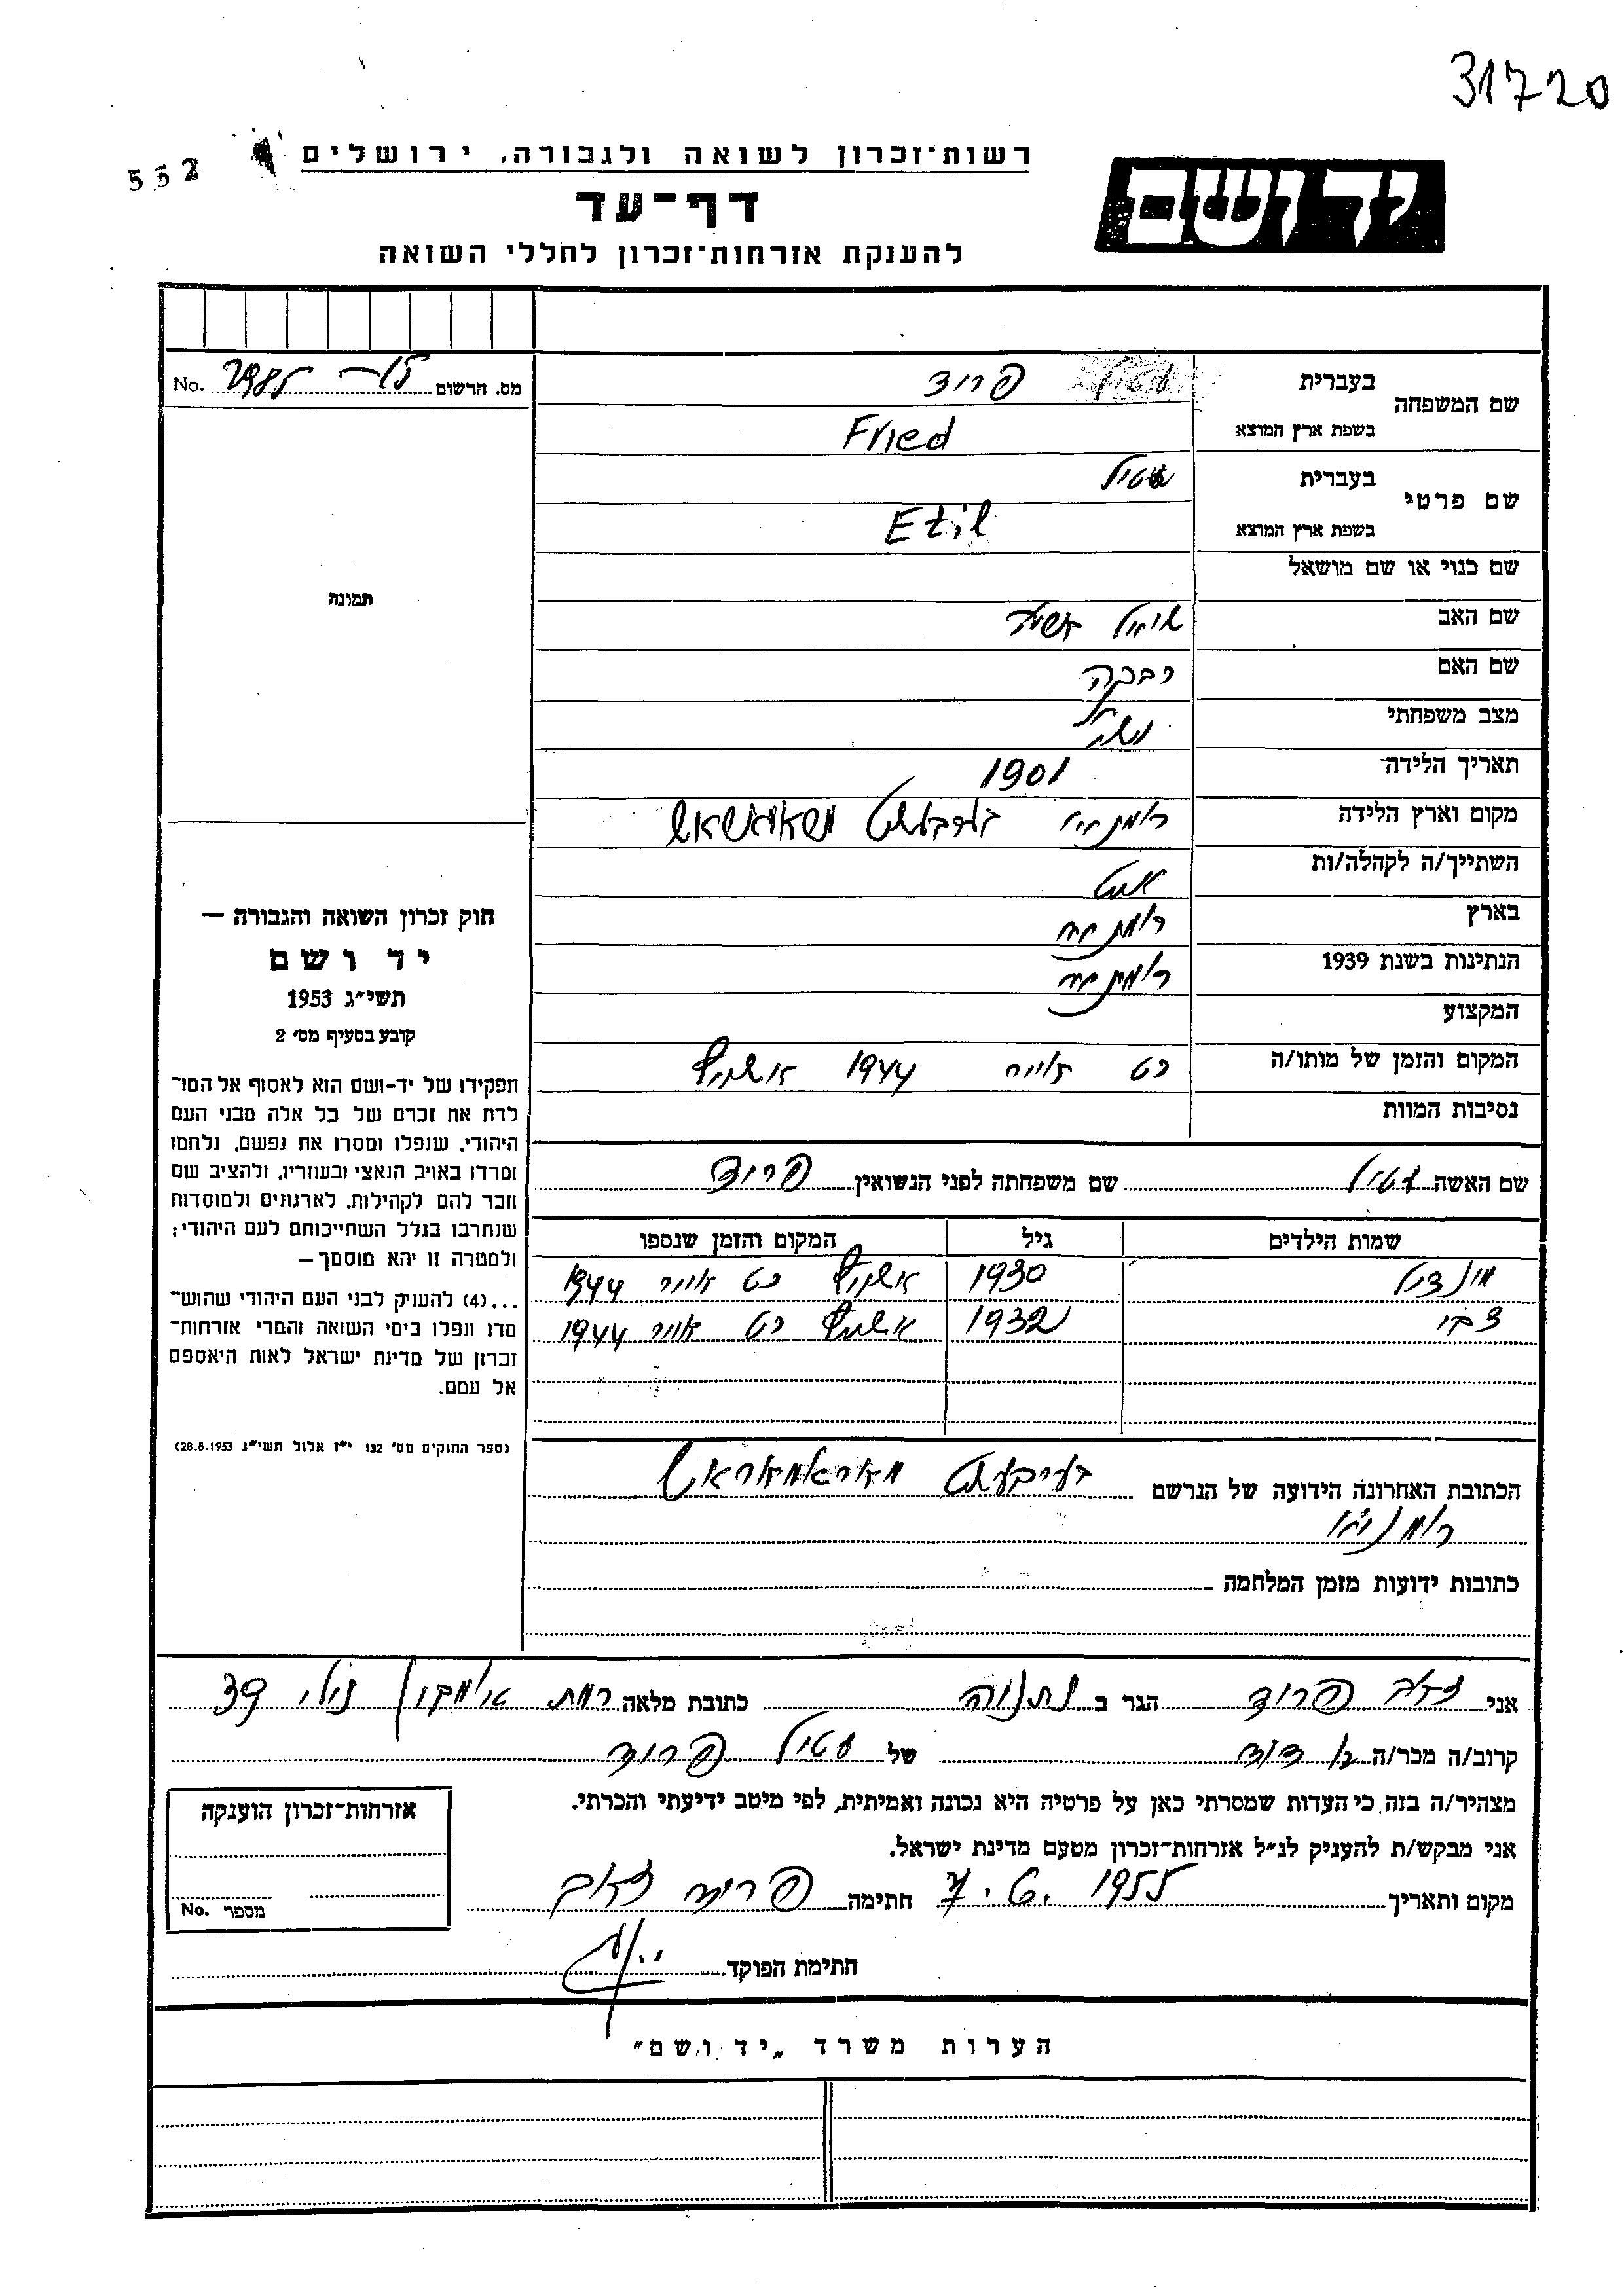 31720
552
רשות־זכרון לשואה ולגבורה, ירושלים
יד ושם
דף־עד
להענקת אזרחות־זכרון לחללי השואה
מס. הרשום No.
שם המשפחה
בעברית פרויד
בשפת ארץ המוצא Fried
שם פרטי
בעברית עטיל
בשפת ארץ המוצא Etil
שם כנוי או שם מושאל
שם האב
שם האם רבקה
מצב משפחתי
תאריך הלידה 1901
מקום וארץ הלידה
השתייך/ה לקהלה/ות
בארץ
הנתינות בשנת 1939
המקצוע
המקום והזמן של מותו/ה כט 1944 אשויץ
נסיבות המוות
תמונה
חוק זכרון השואה והגבורה —
יד ושם
תשי״ג 1953
קובע בסעיף מס׳ 2
תפקידו של יד-ושם הוא לאסוף אל המו־
לדת את זכרם של כל אלה מבני העם
היהודי, שנפלו ומסרו את נפשם, נלחמו
ומרדו באויב הנאצי ובעוזריו, ולהציב שם
וזכר להם לקהילות, לארגונים ולמוסדות
שנחרבו בגלל השתייכותם לעם היהודי;
ולמטרה זו יהא מוסמך —
...(4) להעניק לבני העם היהודי שהוש־
מדו ונפלו בימי השואה והמרי אזרחות־
זכרון של מדינת ישראל לאות היאספם
אל עמם.
(ספר החוקים מס׳ 132 י״ז אלול תשי״ג 28.8.1953)
שם האשה עטיל שם משפחתה לפני הנשואין פרויד
שמות הילדים גיל המקום והזמן שנספו
1930 אשויץ כט אייר 1944
צבי 1932 אשויץ כט אייר 1944
הכתובת האחרונה הידועה של הנרשם מאראמאראש
כתובות ידועות מזמן המלחמה
אני זאב פרויד הגר ב נתניה כתובת מלאה רמת 39
קרוב/ה מכר/ה של עטיל פרויד
מצהיר/ה בזה כי העדות שמסרתי כאן על פרטיה היא נכונה ואמיתית, לפי מיטב ידיעתי והכרתי.
אני מבקש/ת להעניק לנ״ל אזרחות־זכרון מטעם מדינת ישראל.
מקום ותאריך 1955 חתימה פרויד זאב
חתימת הפוקד
אזרחות־זכרון הוענקה
מספר No.
הערות משרד „יד ושם״